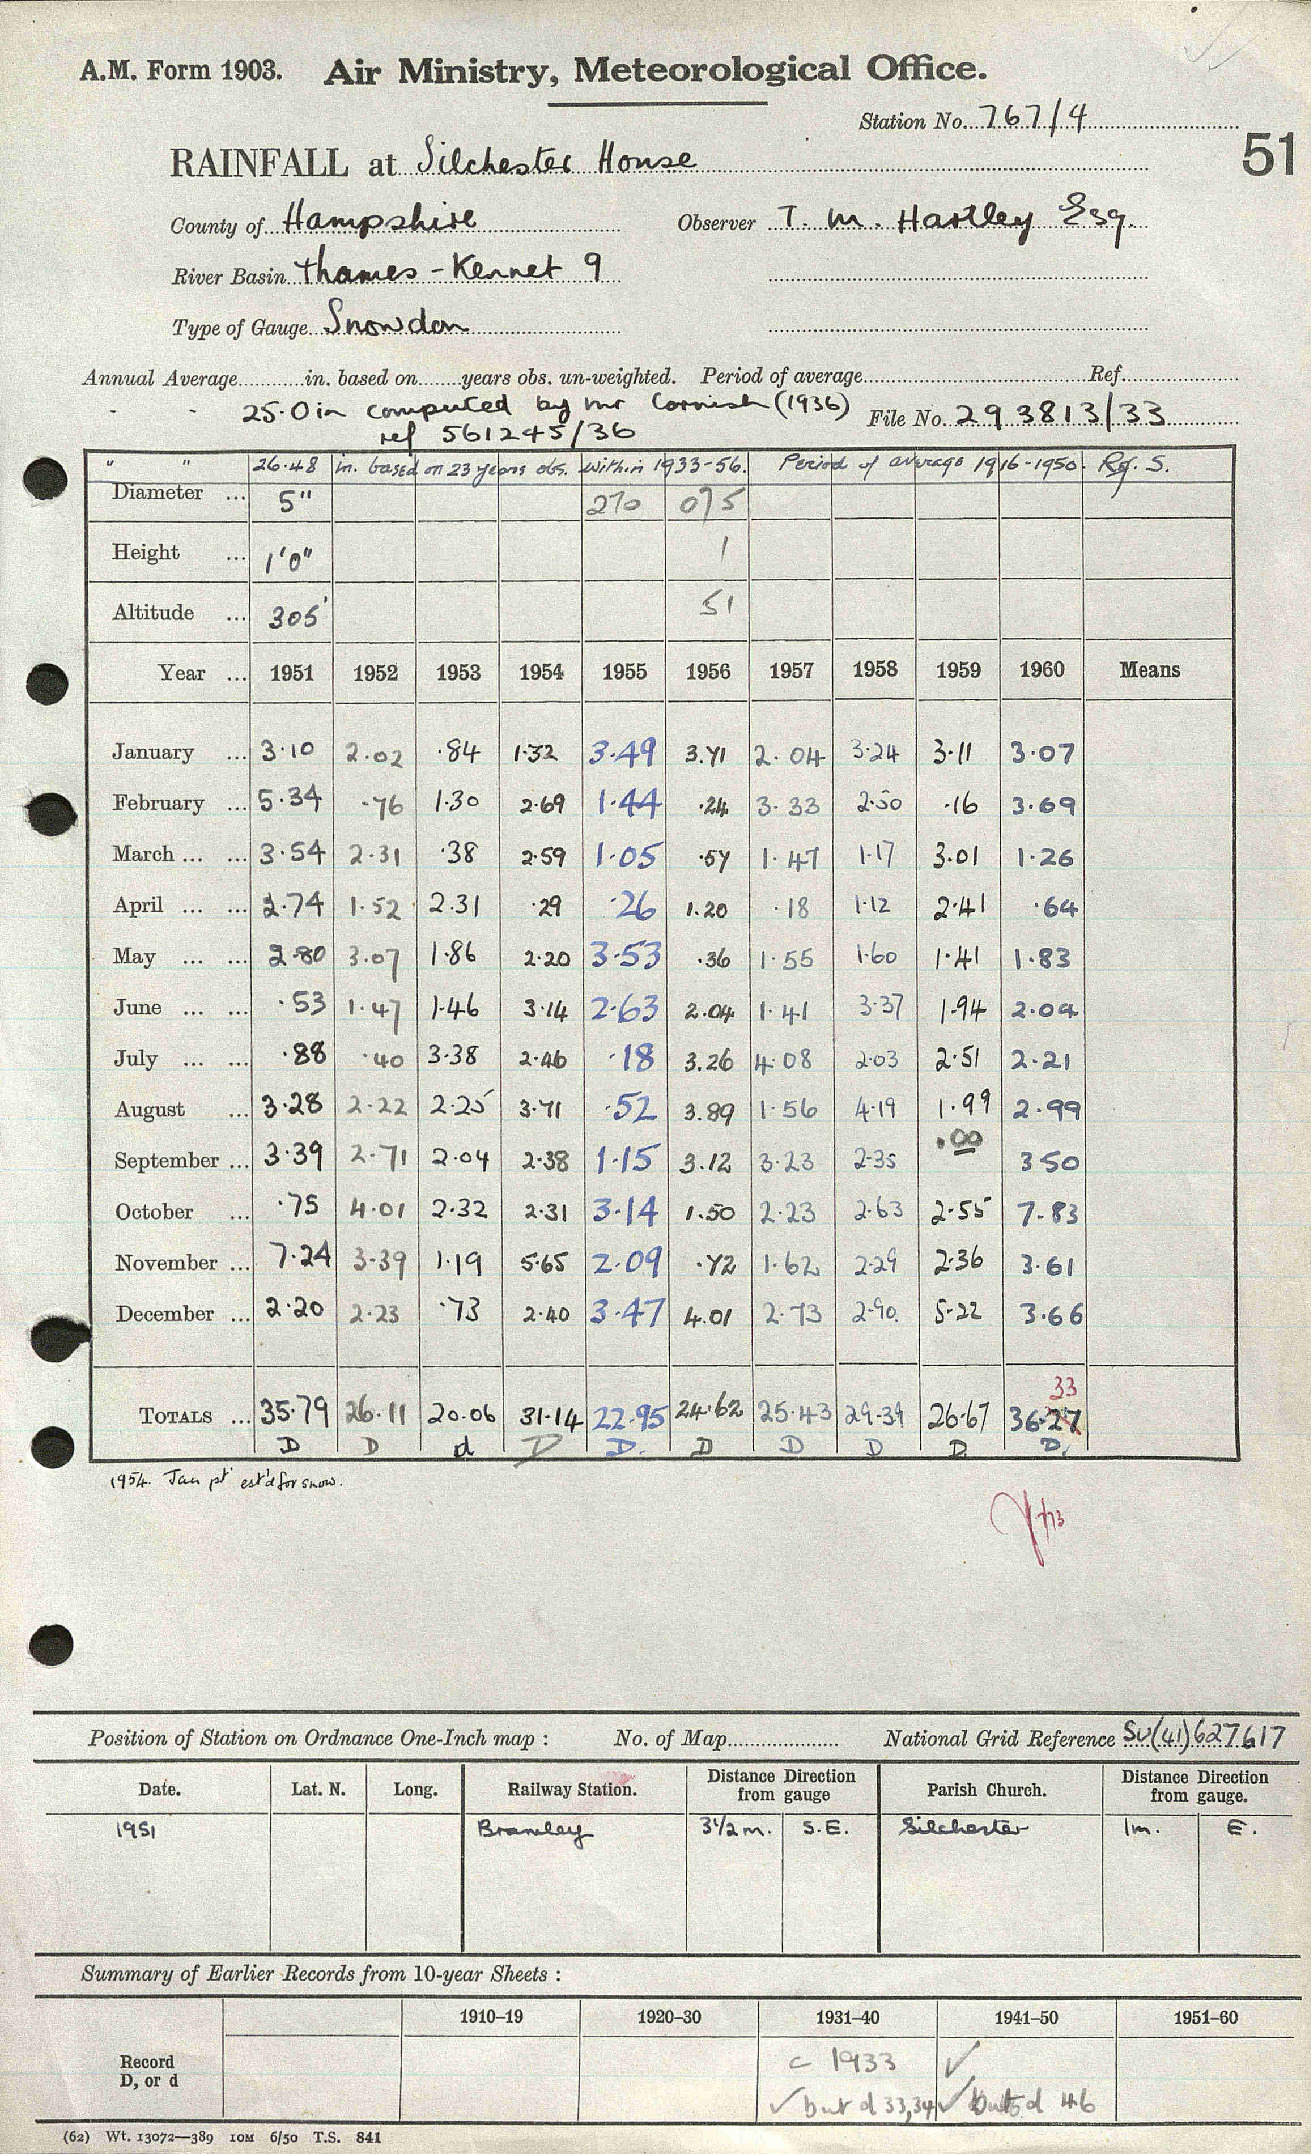 A.M. Form 1903. Air Ministry, Meteorological Office.
Station No. 767/4
51
RAINFALL at Silchester House
County of Hampshire Observer T. M. Hartley Esq.
River Basin Thames - Kennet 9
Type of Gauge Snowdon
Annual Average in. based on years obs. un-weighted. Period of average Ref.
" " 25.0 in computed by Mr Cornish (1936) File No. 293813/33
ref 561245/36
" " 26.48 in. based on 23 years obs. within 1933-56. Period of average 1916-1950. Ref. S.
Diameter ... 5" 270 075
Height ... 1'0" 1
Altitude ... 305' 51
Year ... 1951 1952 1953 1954 1955 1956 1957 1958 1959 1960 Means
January ... 3.10 2.02 .84 1.32 3.49 3.71 2.04 3.24 3.11 3.07
February ... 5.34 .76 1.30 2.69 1.44 .24 3.33 2.50 .16 3.69
March ... ... 3.54 2.31 .38 2.59 1.05 .57 1.47 1.17 3.01 1.26
April ... ... 2.74 1.52 2.31 .29 .26 1.20 .18 1.12 2.41 .64
May ... ... 2.80 3.07 1.86 2.20 3.53 .36 1.55 1.60 1.41 1.83
June ... ... .53 1.47 1.46 3.14 2.63 2.04 1.41 3.37 1.94 2.04
July ... ... .88 .40 3.38 2.46 .18 3.26 4.08 2.03 2.51 2.21
August ... 3.28 2.22 2.25 3.71 .52 3.89 1.56 4.19 1.99 2.99
September ... 3.39 2.71 2.04 2.38 1.15 3.12 3.23 2.35 .00 3 50
October ... .75 4.01 2.32 2.31 3.14 1.50 2.23 2.63 2.55 7.83
November ... 7.24 3.39 1.19 5.65 2.09 .72 1.62 2.29 2.36 3.61
December ... 2.20 2.23 .73 2.40 3.47 4.01 2.73 2.90. 5.22 3.66
33
TOTALS ... 35.79 26.11 20.06 31.14 22.95 24.62 25.43 29.39 26.67 36.27
D D d D D. D D D D. D.
1954. Jan pt est'd for snow.
Position of Station on Ordnance One-Inch map : No. of Map National Grid Reference SU(41)627617
Date. Lat. N. Long. Railway Station. Distance from gauge Direction Parish Church. Distance from gauge. Direction
1951 Bramley 3½ m. S.E. Silchester 1m. E.
Summary of Earlier Records from 10-year Sheets :
1910–19 1920–30 1931–40 1941–50 1951–60
Record D, or d c 1933 ✓
✓ but d 33,34 ✓ but d 46
(62) Wt. 13072—389 10M 6/50 T.S. 841